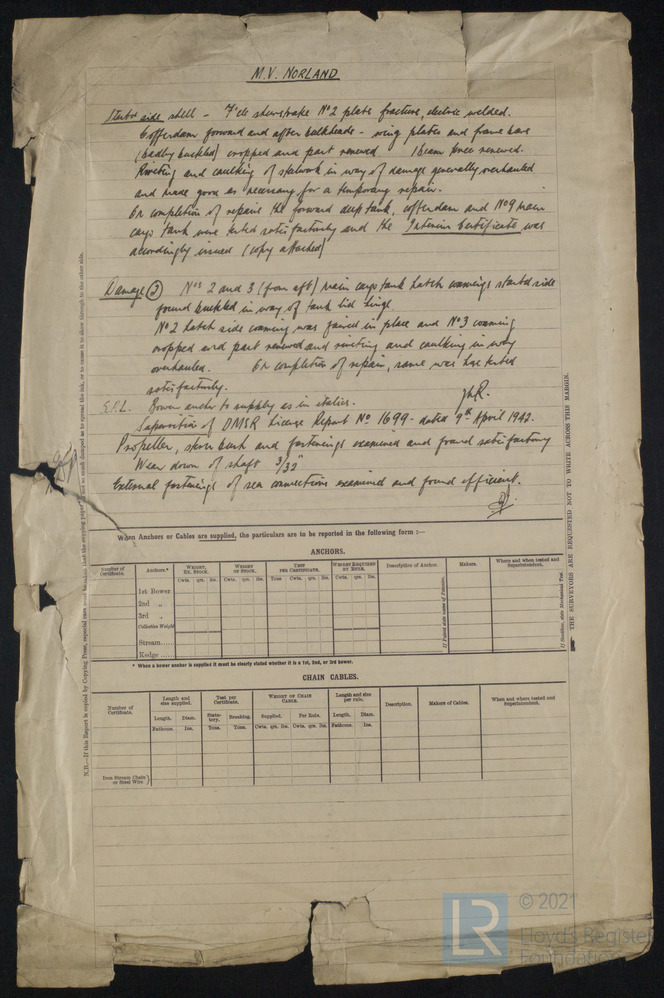 M.V. NORLAND
Starbd side shell - "F" dk sheerstrake No 2 plate fracture, electric welded.
Cofferdam forward and after bulkheads - wing plates and frame bars
(badly buckled) cropped and part renewed 1 beam knee renewed.
Riveting and caulking of steelwork in way of damage generally overhauled
and made good as necessary for a temporary repair.
On completion of repairs the forward deep tank, cofferdam and No 9 main
cargo tank were tested satisfactorily and the Interim Certificate was
accordingly issued (copy attached)
Damage (3) Nos 2 and 3 (from aft) main cargo tank hatch coamings starbd side
found buckled in way of tank lid hinge
No 2 hatch side coaming was faired in place and No 3 coaming
cropped and part renewed and riveting and caulking in way
overhauled. On completion of repair, same was hose tested
satisfactorily.
S.I.L. Bower anchor to supply as in italics.
Supervision of DMSR License Report No 1699 - dated 9th April 1942.
Propeller, stern bush and fastenings examined and found satisfactory
Wear down of shaft 3/32"
External fastenings of sea connections examined and found efficient.
When Anchors or Cables are supplied, the particulars are to be reported in the following form :—
ANCHORS.
Number of Certificate. Anchors.* WEIGHT, EX. STOCK. WEIGHT OF STOCK. TEST PER CERTIFICATE. WEIGHT REQUIRED BY RULE. Description of Anchor. Makers. Where and when tested and Superintendent.
Cwts. qrs. lbs. Cwts. qrs. lbs. Tons Cwts. qrs. lbs. Cwts. qrs. lbs.
1st Bower
2nd „
3rd „
Collective Weight
Stream......
Kedge ......
* When a bower anchor is supplied it must be clearly stated whether it is a 1st, 2nd, or 3rd bower.
CHAIN CABLES.
Number of Certificate. Length and size supplied. Test per Certificate. WEIGHT OF CHAIN CABLE. Length and size per rule. Description. Makers of Cables. When and where tested and Superintendent.
Length. Diam. Statutory. Breaking. Supplied. Per Rule. Length. Diam.
Fathoms. Ins. Tons. Tons. Cwts. qrs. lbs. Cwts. qrs. lbs. Fathoms. Ins.
Iron Stream Chain or Steel Wire
THE SURVEYORS ARE REQUESTED NOT TO WRITE ACROSS THIS MARGIN.
LR
© 2021
Lloyd's Register
Foundation